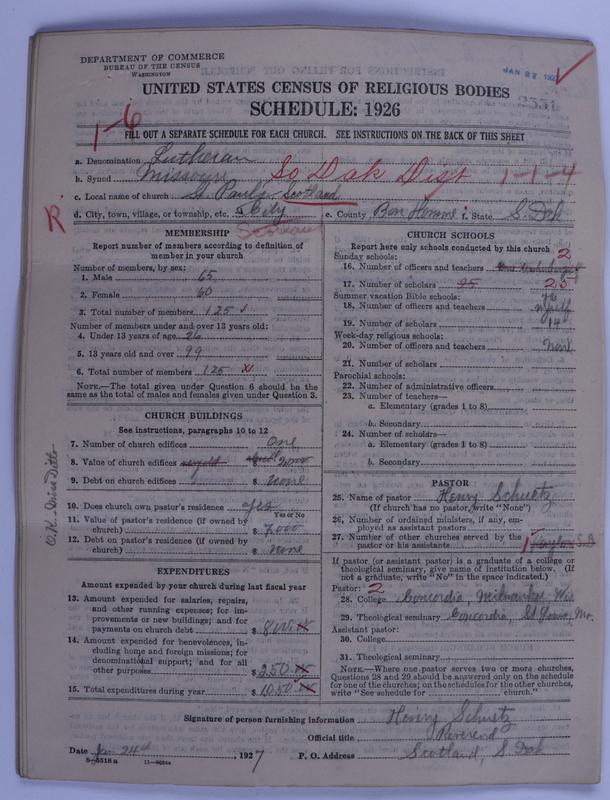 DEPARTMENT OF COMMERCE
BUREAU OF THE CENSUS
WASHINGTON
UNITED STATES CENSUS OF RELIGIOUS BODIES
SCHEDULE: 1926
1-6
FILL OUT A SEPARATE SCHEDULE FOR EACH CHURCH. SEE INSTRUCTIONS ON THE BACK OF THIS SHEET
a. Denomination Lutheran
b. Synod Missouri So Dak Dist 1-1-4
c. Local name of church St Paul's Scotland
R d. City, town, village, or township, etc. City e. County Bon Homme f. State S. Dak
Scotland
MEMBERSHIP
Report number of members according to definition of
member in your church
Number of members, by sex:
1. Male 65
2. Female 60
3. Total number of members 125
Number of members under and over 13 years old:
4. Under 13 years of age 26
5. 13 years old and over 99
6. Total number of members 125
NOTE.—The total given under Question 6 should be the
same as the total of males and females given under Question 3.
CHURCH BUILDINGS
See instructions, paragraphs 10 to 12
7. Number of church edifices One
8. Value of church edifices $
9. Debt on church edifices $ none
10. Does church own pastor's residence yes
Yes or No
11. Value of pastor's residence (if owned by
church) $ 7000
12. Debt on pastor's residence (if owned by
church) $ none
EXPENDITURES
Amount expended by your church during last fiscal year
13. Amount expended for salaries, repairs,
and other running expenses; for im-
provements or new buildings; and for
payments on church debt $ 800
14. Amount expended for benevolences, in-
cluding home and foreign missions; for
denominational support; and for all
other purposes $ 250
15. Total expenditures during year $ 1050
CHURCH SCHOOLS
Report here only schools conducted by this church
Sunday schools: 2
16. Number of officers and teachers
17. Number of scholars 25 25
Summer vacation Bible schools:
18. Number of officers and teachers myself
19. Number of scholars 14
Week-day religious schools:
20. Number of officers and teachers None
21. Number of scholars
Parochial schools:
22. Number of administrative officers
23. Number of teachers—
a. Elementary (grades 1 to 8)
b. Secondary
24. Number of scholars—
a. Elementary (grades 1 to 8)
b. Secondary
PASTOR
25. Name of pastor Henry Schuetz
(If church has no pastor, write "None")
26. Number of ordained ministers, if any, em-
ployed as assistant pastors
27. Number of other churches served by the
pastor or his assistants 1
If pastor (or assistant pastor) is a graduate of a college or
theological seminary, give name of institution below. (If
not a graduate, write "No" in the space indicated.)
Pastor: 2
28. College Concordia, Milwaukee, Wis
29. Theological seminary Concordia, St Louis, Mo.
Assistant pastor:
30. College
31. Theological seminary
NOTE.—Where one pastor serves two or more churches,
Questions 28 and 29 should be answered only on the schedule
for one of the churches; on the schedules for the other churches,
write "See schedule for church."
Signature of person furnishing information Henry Schuetz
Official title Reverend
Date Jan 24th, 1927 P. O. Address Scotland, S. Dak
8-5518a